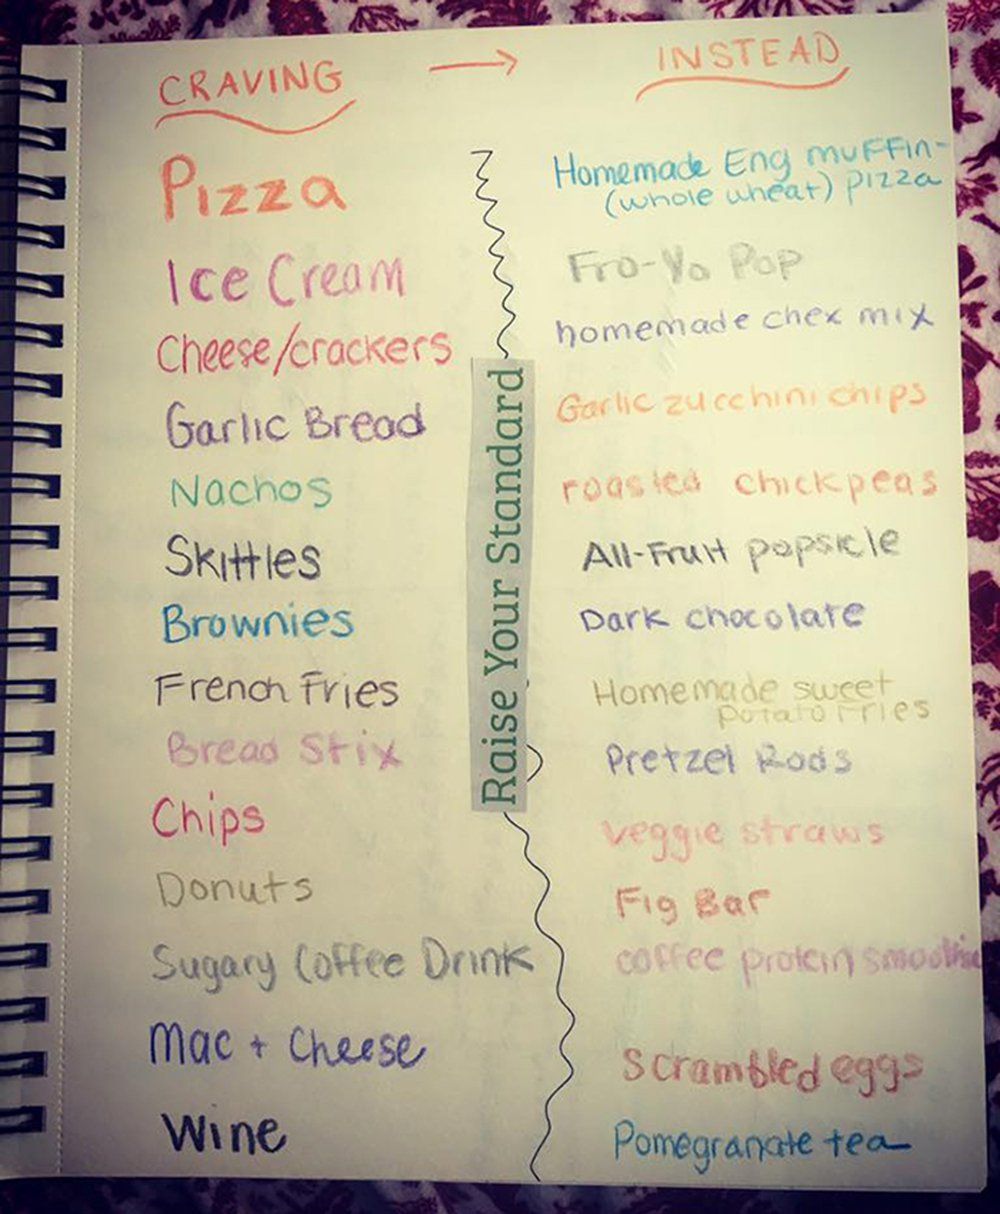 CRAVING → INSTEAD
Pizza
Homemade Eng muffin-
(whole wheat) pizza
Ice Cream
Fro-Yo Pop
Cheese/crackers
homemade chex mix
Garlic Bread
Garlic zucchini chips
Nachos
roasted chickpeas
Skittles
All-Fruit popsicle
Brownies
Dark chocolate
French Fries
Homemade sweet
potato fries
Bread Stix
Pretzel Rods
Chips
veggie straws
Donuts
Fig Bar
Sugary Coffee Drink
coffee protein smoothie
Mac + Cheese
Scrambled eggs
Wine
Pomegranate tea
Raise Your Standard